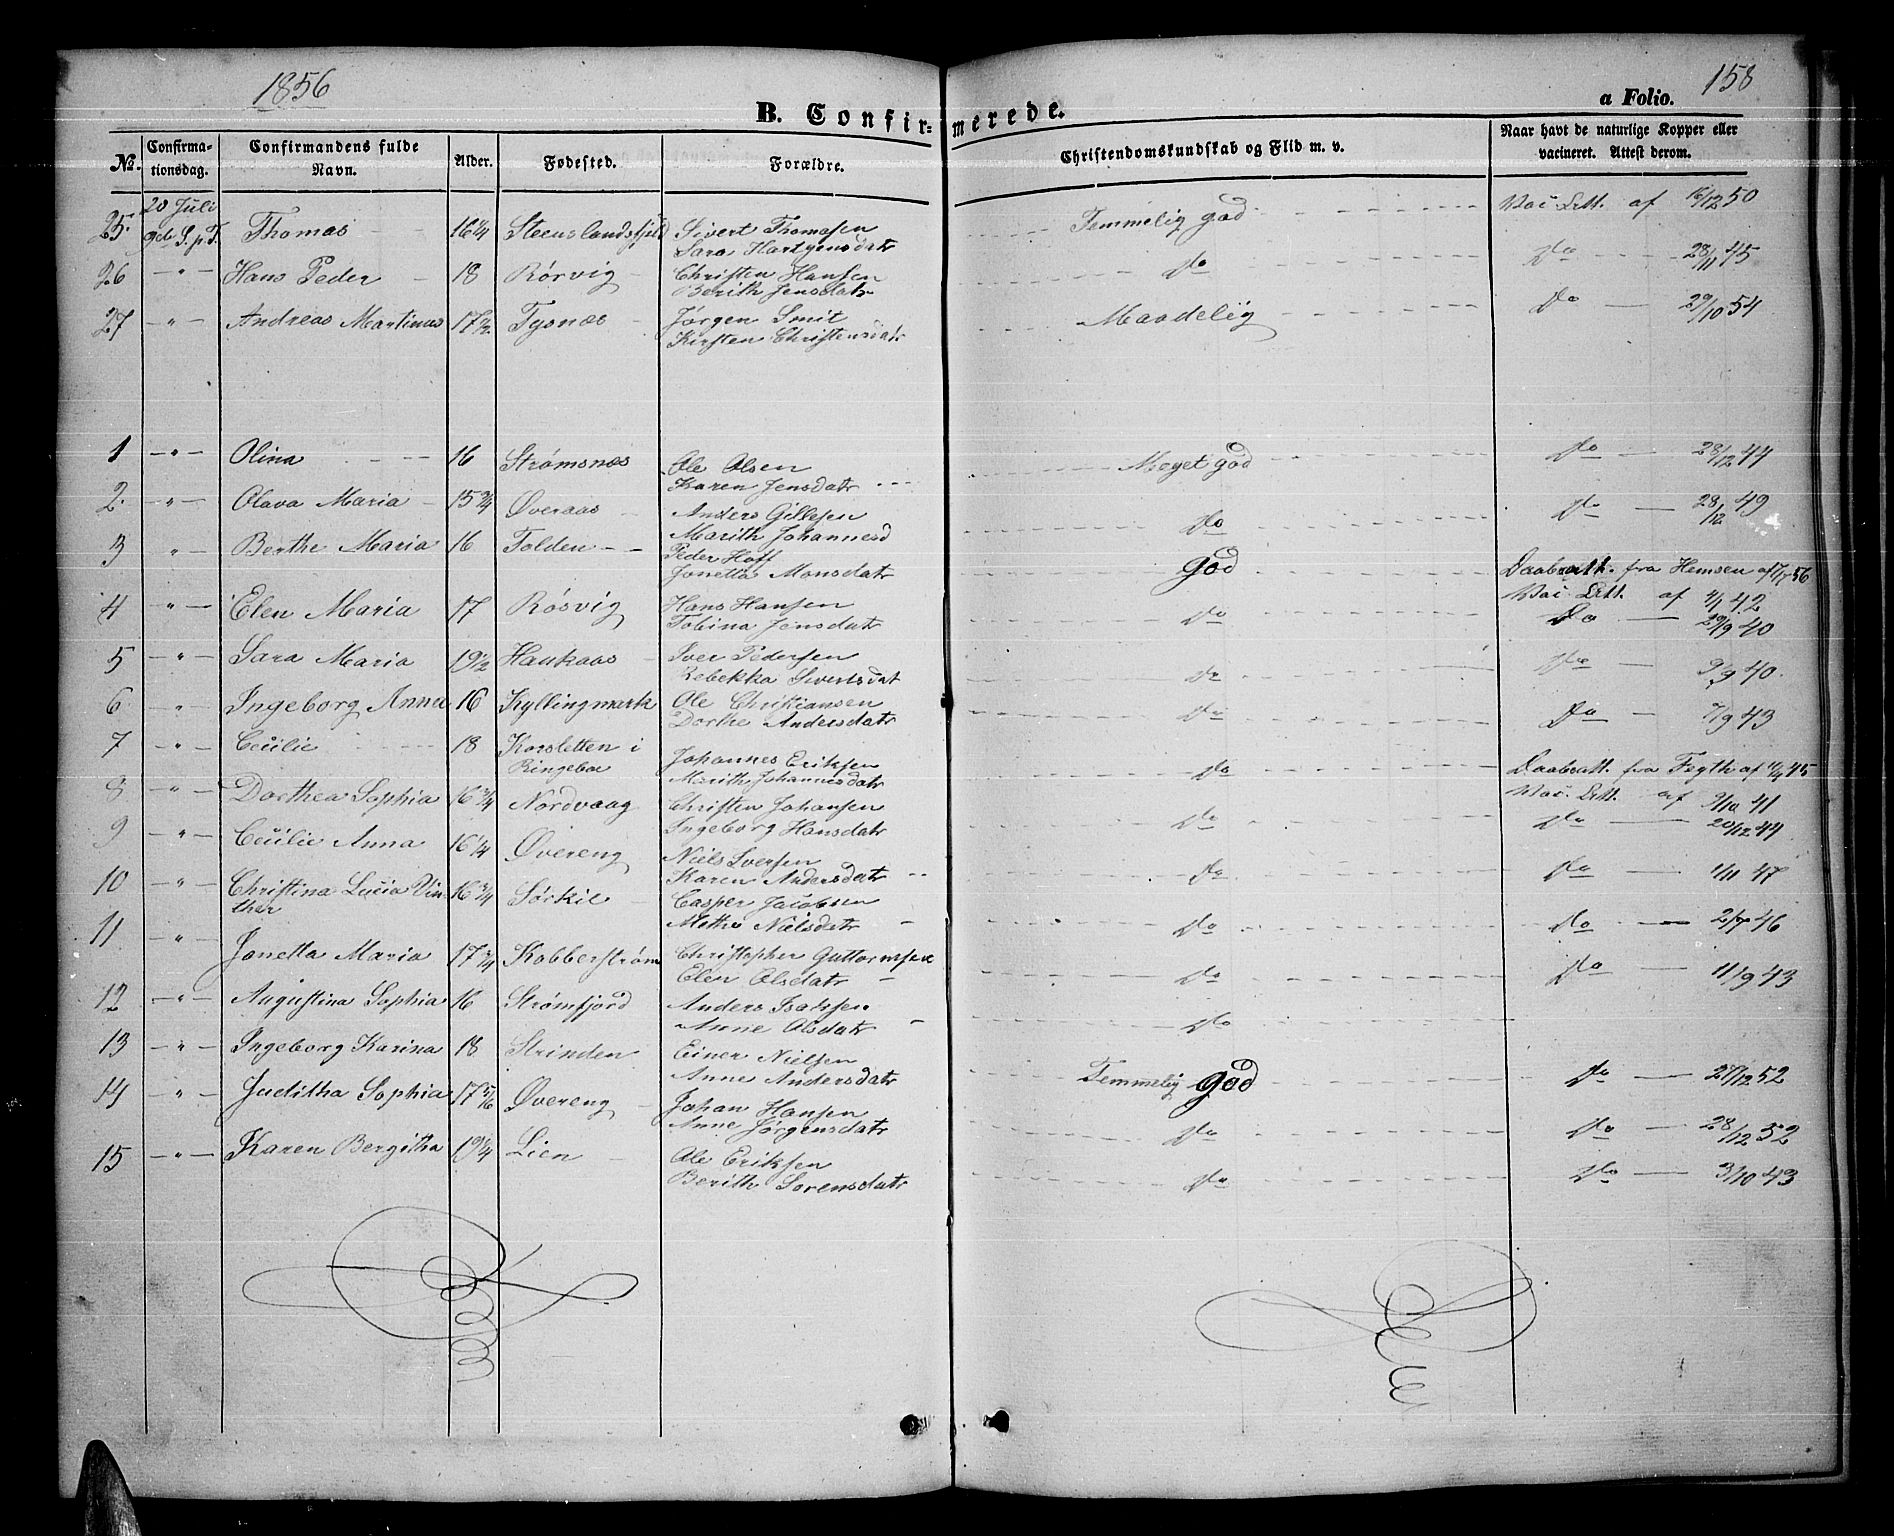 1856
158
B. Confirmerede.
a Folio.
No. Confirmationsdag. Confirmandens fulde Navn. Alder. Fødested. Forældre. Christendomskundskab og Flid m. v. Naar havt de naturlige Kopper eller vacineret. Attest derom.
20 Juli
25 9de S. p. T. Thomas 16 1/4 Steenslandsfjeld Sivert Thomasen Temmelig god Vac. Att. af 16/12 50
Sara Hartgensdatr
26 - " - Hans Peder - 18 Rørvig - Christen Hansen Do Do 28/11 45
Berith Jensdatr
27 - " - Andreas Martinus 17 1/2 Tysnæs - Jørgen Smit Maadelig Do - 29/10 54
Kirsten Christensdatr
1 - " - Olina 16 Strømsnæs Ole Olsen Meget god Do - 28/12 44
Karen Jensdatr
2. - " - Olava Maria - 15 3/4 Øveraas Anders Gillesen Do Do - 28/12 49
Marith Johannesd
3 " - Berthe Maria 16 Folden - - Peder Hoff god Daabsatt. fra Hemsen af 7/7 56
Jonetta Monsdatr Vac. Att. af 4/1 42
4 - " - Elen Maria 17 Røsvig Hans Hansen Do Do - 29/9 40
Tobina Jensdatr
5 - " - Sara Maria 19 1/2 Haukaas - Iver Pedersen Do Do - 9/9 40
Rebekka Sivertsdat
6 " - Ingeborg Anna 16 Kyllingmark Ole Christiansen Do Do - 7/9 43
Dorthe Andersdatr
7 - " - Cecilie 18 Korsletten i Ringeboe Johannes Eriksen Do Daabsatt. fra Fegth af 11/4 45
Marith Johannesdatr Vac. Att. af 9/10 41
8 - " - Dorthea Sophia 16 3/4 Nordvaag Christen Johansen Do Do 20/12 44
Ingeborg Hansdatr
9 - " - Cecilie Anna 16 1/4 Øvereng Niels Iversen Do Do 1/11 47
Karen Andersdatr
10 - " - Christina Lucia Vinther 16 3/4 Sørkil - Casper Jacobsen Do Do 2/7 46
Methe Nielsdatr -
11 - " - Jonetta Maria 17 3/4 Kobberstrøm Christopher Guttormsen Do Do - 11/9 43
Elen Olsdatr -
12 - " - Augustina Sophia 16 Strømfjord Anders Isaksen Do
Anne Olsdatr -
13 - " - Ingeborg Karina 18 Strinden Einer Nielsen Temmelig god Do - 27/12 52
Anne Andersdatr
14 " - Juditha Sophia 17 5/16 Øvereng - Johan Hansen Do Do - 28/12 52
Anne Jørgensdatr
15 - " - Karen Bergitha 19 1/4 Lien - Ole Eriksen Do Do - 3/10 43
Berith Sorensdatr